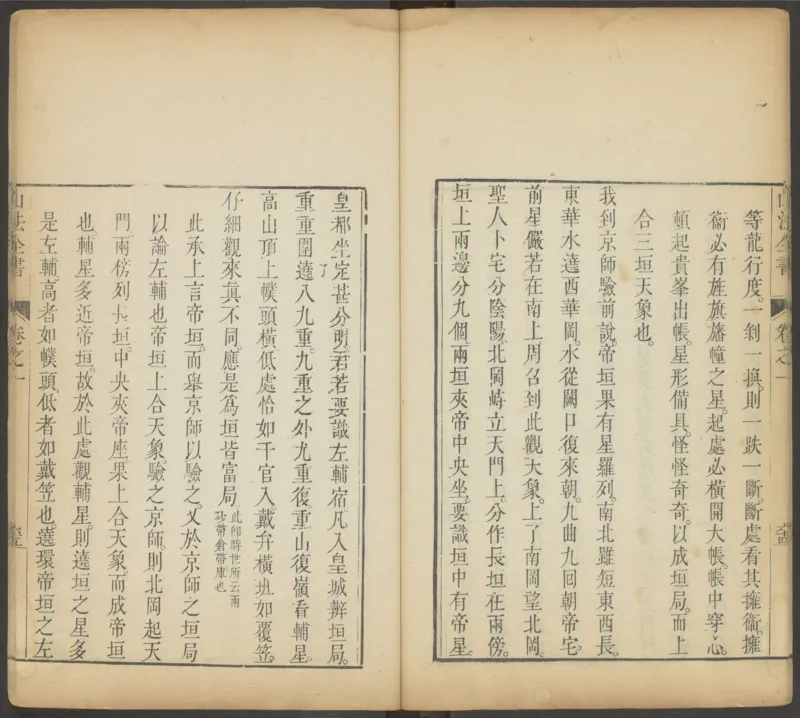 等龍行度。一剝一換。則一跌一斷。斷處看其擁衞。擁
衞必有旌旗旛幢之星。起處必橫開大帳。帳中穿心。
頓起貴峯出帳。星形備具。怪怪奇奇。以成垣局。而上
合三垣天象也。
我到京師驗前說。帝垣果有星羅列。南北雖短東西長。
東華水遶西華岡。水從闕口復來朝。九曲九回朝帝宅。
前星儼若在南上。周召到此觀天象。上了南岡望北岡。
聖人卜宅分陰陽。北岡峙立天門上。分作長垣在兩傍。
垣上兩邊分九個。兩垣夾帝中央坐。要識垣中有帝星。
皇都坐定甚分明。君若要識左輔宿。凡入皇城辨垣局。
重重圍遶八九重。九重之外九重復。重山復嶺看輔星。
高山頂上幞頭橫。低處恰如千官入。戴弁橫班如覆笠。
仔細觀來眞不同。應是爲垣皆富局。此卽時世所云兩
砂帶倉帶庫也
此承上言帝垣。而舉京師以驗之。又於京師之垣局
以論左輔也。帝垣上合天象。驗之京師。則北岡起天
門。兩傍列長垣。中央夾帝座。果上合天象。而成帝垣
也。輔星多近帝垣。故於此處觀輔星。則遶垣之星多
是左輔。高者如幞頭。低者如戴笠也。遶環帝垣之左
山法全書
卷之一